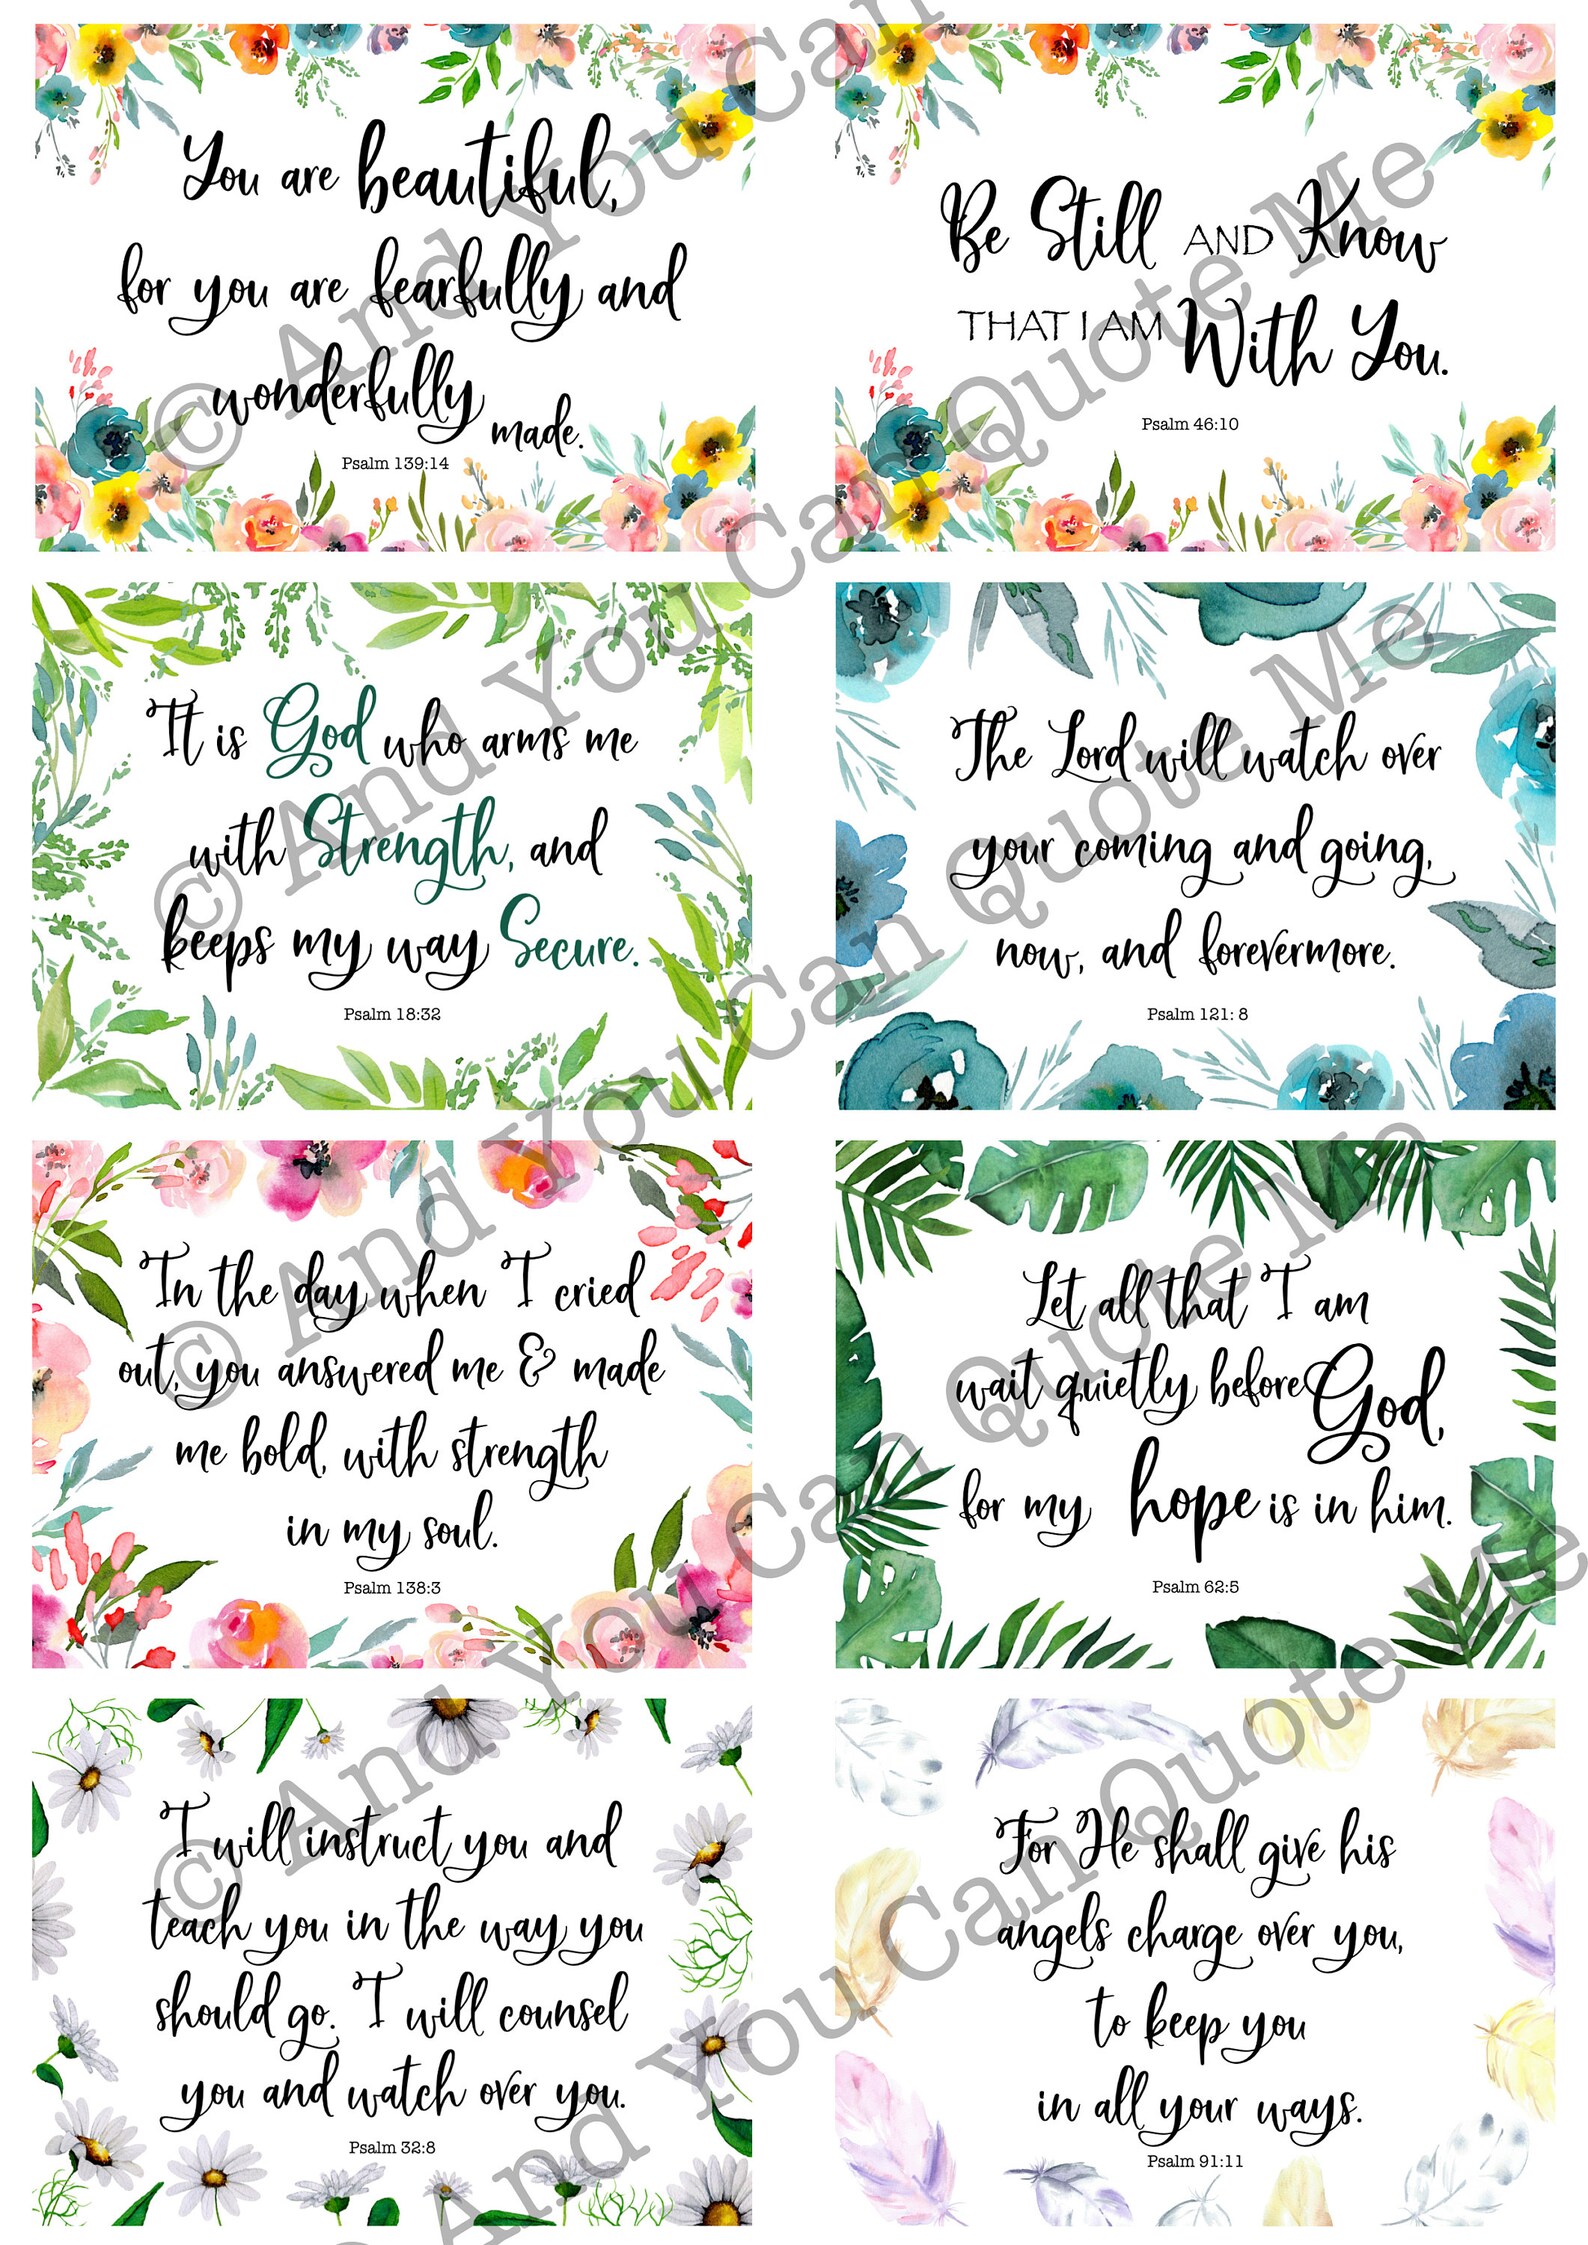 You are beautiful,
for you are fearfully and
wonderfully made.
Psalm 139:14
Be Still AND Know
THAT I AM With You.
Psalm 46:10
It is God who arms me
with Strength, and
keeps my way Secure.
Psalm 18:32
The Lord will watch over
your coming and going,
now, and forevermore.
Psalm 121: 8
In the day when I cried
out, you answered me & made
me bold, with strength
in my soul.
Psalm 138:3
Let all that I am
wait quietly before God,
for my hope is in him.
Psalm 62:5
I will instruct you and
teach you in the way you
should go. I will counsel
you and watch over you.
Psalm 32:8
For He shall give his
angels charge over you,
to keep you
in all your ways.
Psalm 91:11
© And You Can Quote Me
© And You Can Quote Me
© And You Can Quote Me
© And You Can Quote Me
© And You Can Quote Me